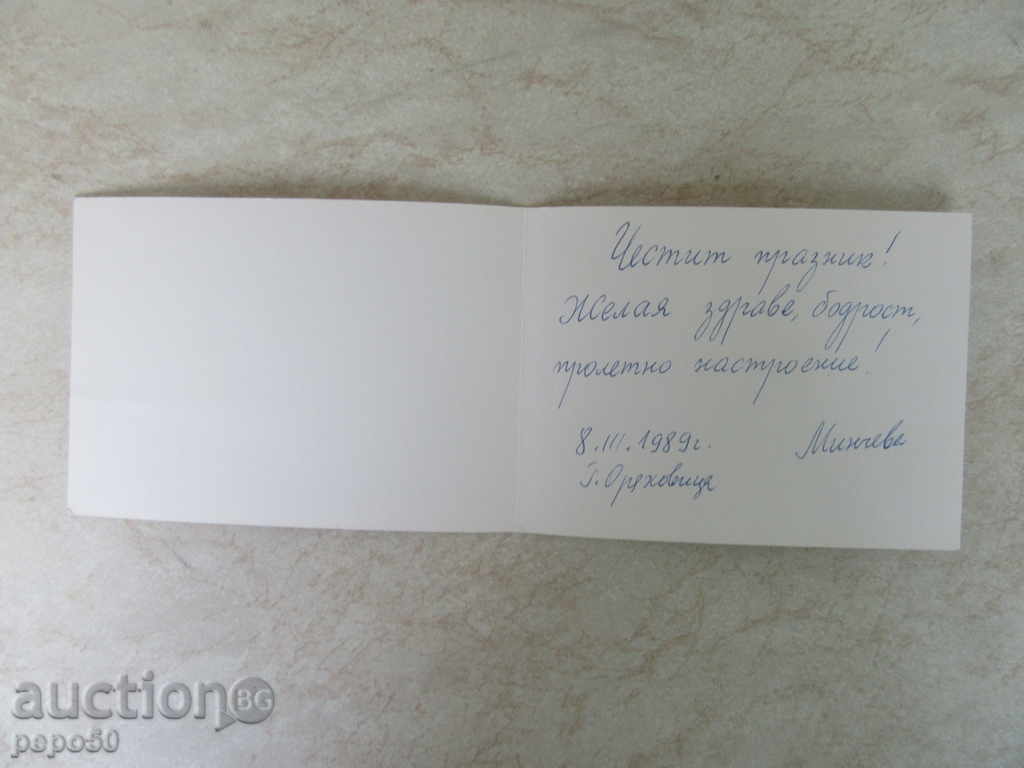 Честит празник!
Желая здраве, бодрост,
пролетно настроение!
8.III.1989г. Минчева
Г.Оряховица
auction BG
popo50